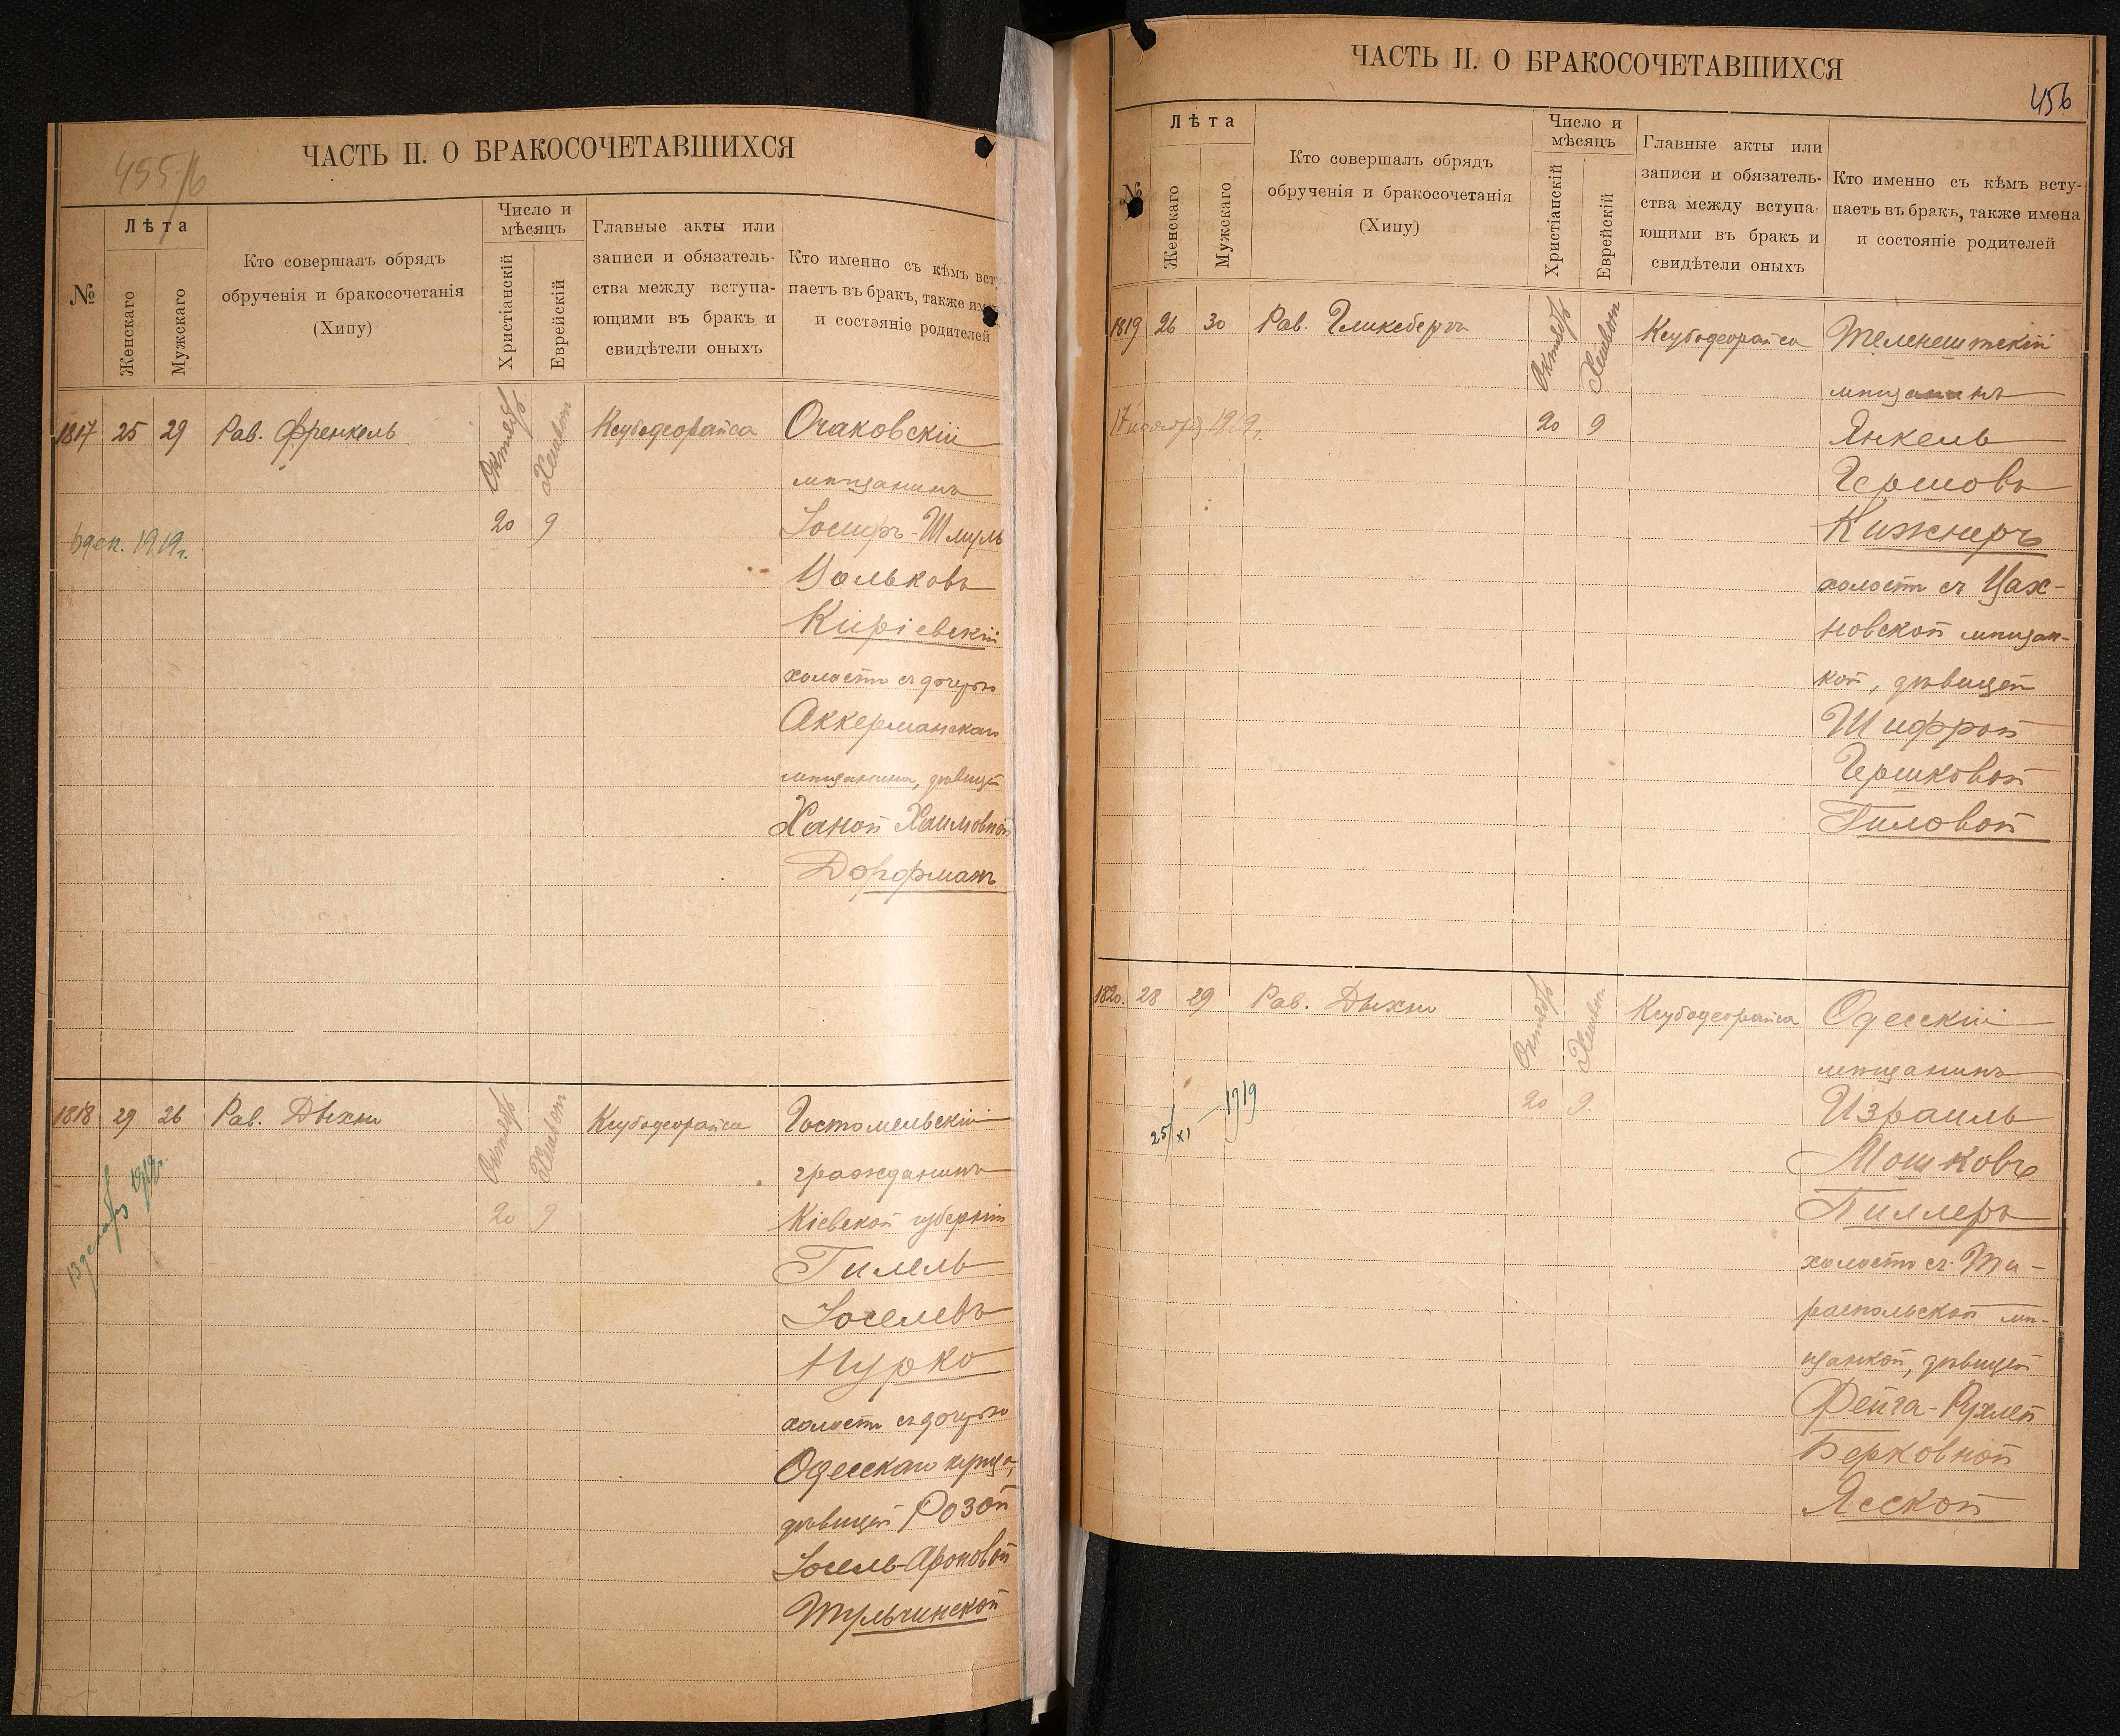 455/б
ЧАСТЬ II. О БРАКОСОЧЕТАВШИХСЯ
№
Лѣта
Женскаго
Мужскаго
Кто совершалъ обрядъ
обрученія и бракосочетанія
(Хипу)
Число и
мѣсяцъ
Христіанскій
Еврейскій
Главные акты или
записи и обязатель-
ства между вступа-
ющими въ бракъ и
свидѣтели оныхъ
Кто именно съ кѣмъ всту
паетъ въ бракъ, также им
и состояніе родителей
1817 25 29 Рав. Френкель
Октябрь
Хешвон
20 9
Ксубодеорайса
6 дек. 1919 г.
Очаковскій
мѣщанинъ
Іосифъ-Шмуль
Вольковъ
Киріевскій
холостъ съ дочерью
Аккерманскаго
мѣщанина, дѣвицей
Ханой Хаимовной
Дорфманъ
1818 29 26 Рав. Дыхно
Октябрь
Хешвон
20 9
Ксубодеорайса
13 декабря 1919 г.
Гостомельскій
гражданинъ
Кіевской губерніи
Гилель
Іоселевъ
Нурко
холостъ съ дочерью
Одесскаго купца,
дѣвицей Розой
Іосель-Ароновой
Тульчинской
ЧАСТЬ II. О БРАКОСОЧЕТАВШИХСЯ
456
№
Лѣта
Женскаго
Мужскаго
Кто совершалъ обрядъ
обрученія и бракосочетанія
(Хипу)
Число и
мѣсяцъ
Христіанскій
Еврейскій
Главные акты или
записи и обязатель-
ства между вступа-
ющими въ бракъ и
свидѣтели оныхъ
Кто именно съ кѣмъ всту-
паетъ въ бракъ, также имена
и состояніе родителей
1819 26 30 Рав. Гликсбергъ
Октябрь
Хешвон
20 9
Ксубодеорайса
17 ноября 1919 г.
Теленештскій
мѣщанинъ
Янкель
Гершовъ
Кижнеръ
холостъ съ Цах-
новской мѣщан-
кой, дѣвицей
Шифрой
Гершковой
Гиловой
1820. 28 29 Рав. Дыхно
Октябрь
Хешвон
20 9
Ксубодеорайса
25/XI - 1919
Одесскій
мѣщанинъ
Израиль
Мошковъ
Пиллеръ
холостъ съ Ти-
распольской мѣ-
щанкой, дѣвицей
Фейга-Рухлей
Берковной
Ясской